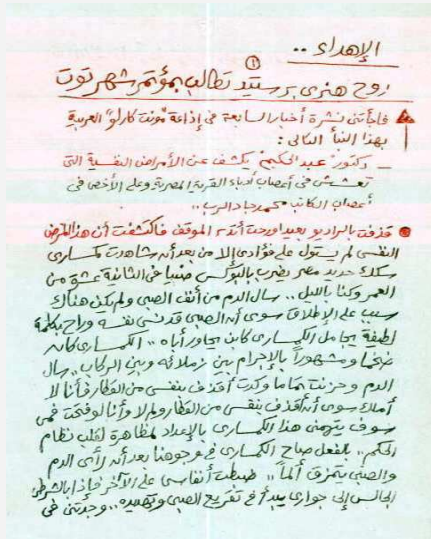 الإهداء ..
①
روح هنرى برستيد تطالب بمؤتمر شهر توت
فاجأتنى نشرة أخبار السابعة فى إذاعة "مونت كارلو" العربية
بهذا النبأ التالى :
_ دكتور "عبد الحكيم" يكشف عن الأمراض النفسية التى
تعشش فى أعصاب أدباء القرية المصرية وعلى الأخص فى
أعصاب الكاتب محمد جاد الرب ..
قذفت بالراديو بعيدا ورحت أتدبر الموقف فاكتشفت أن هذا المرض
النفسى لم يستول على فؤادى إلا من بعد أن شاهدت كمسارى
سكك حديد مصر يضرب بالبوكس صبيا فى الثانية عشق من
العمر وكنا بالليل .. سال الدم من أنف الصبى ولم يكن هناك
سبب على الإطلاق سوى أن الصبى قد نسى نفسه وراح بكلمة
لطيفة يجامل الكمسارى كابن يجاور أباه .. الكمسارى كان
ضخما ومشهوراً بالإجرام بين زملائه وبين الركاب .. سال
الدم وحزنت تماما وكدت أقذف بنفسى من القطار فأنا لا
أملك سوى أن أقذف بنفسى من القطار ولم لا وأنا لو فتحت فمى
سوف يتهمنى هذا الكمسارى بالإعداد لمظاهرة لقلب نظام
الحكم .. بالفعل صاح الكمسارى فى وجوهنا بعد أن رأى الدم
والصبى يتمزق ألماً .. ضبطت أنفاسى على الآخر فإذا بالشرطى
الجالس إلى جوارى يبدأ فى تقريع الصبى وتهديده .. وجدتنى فى